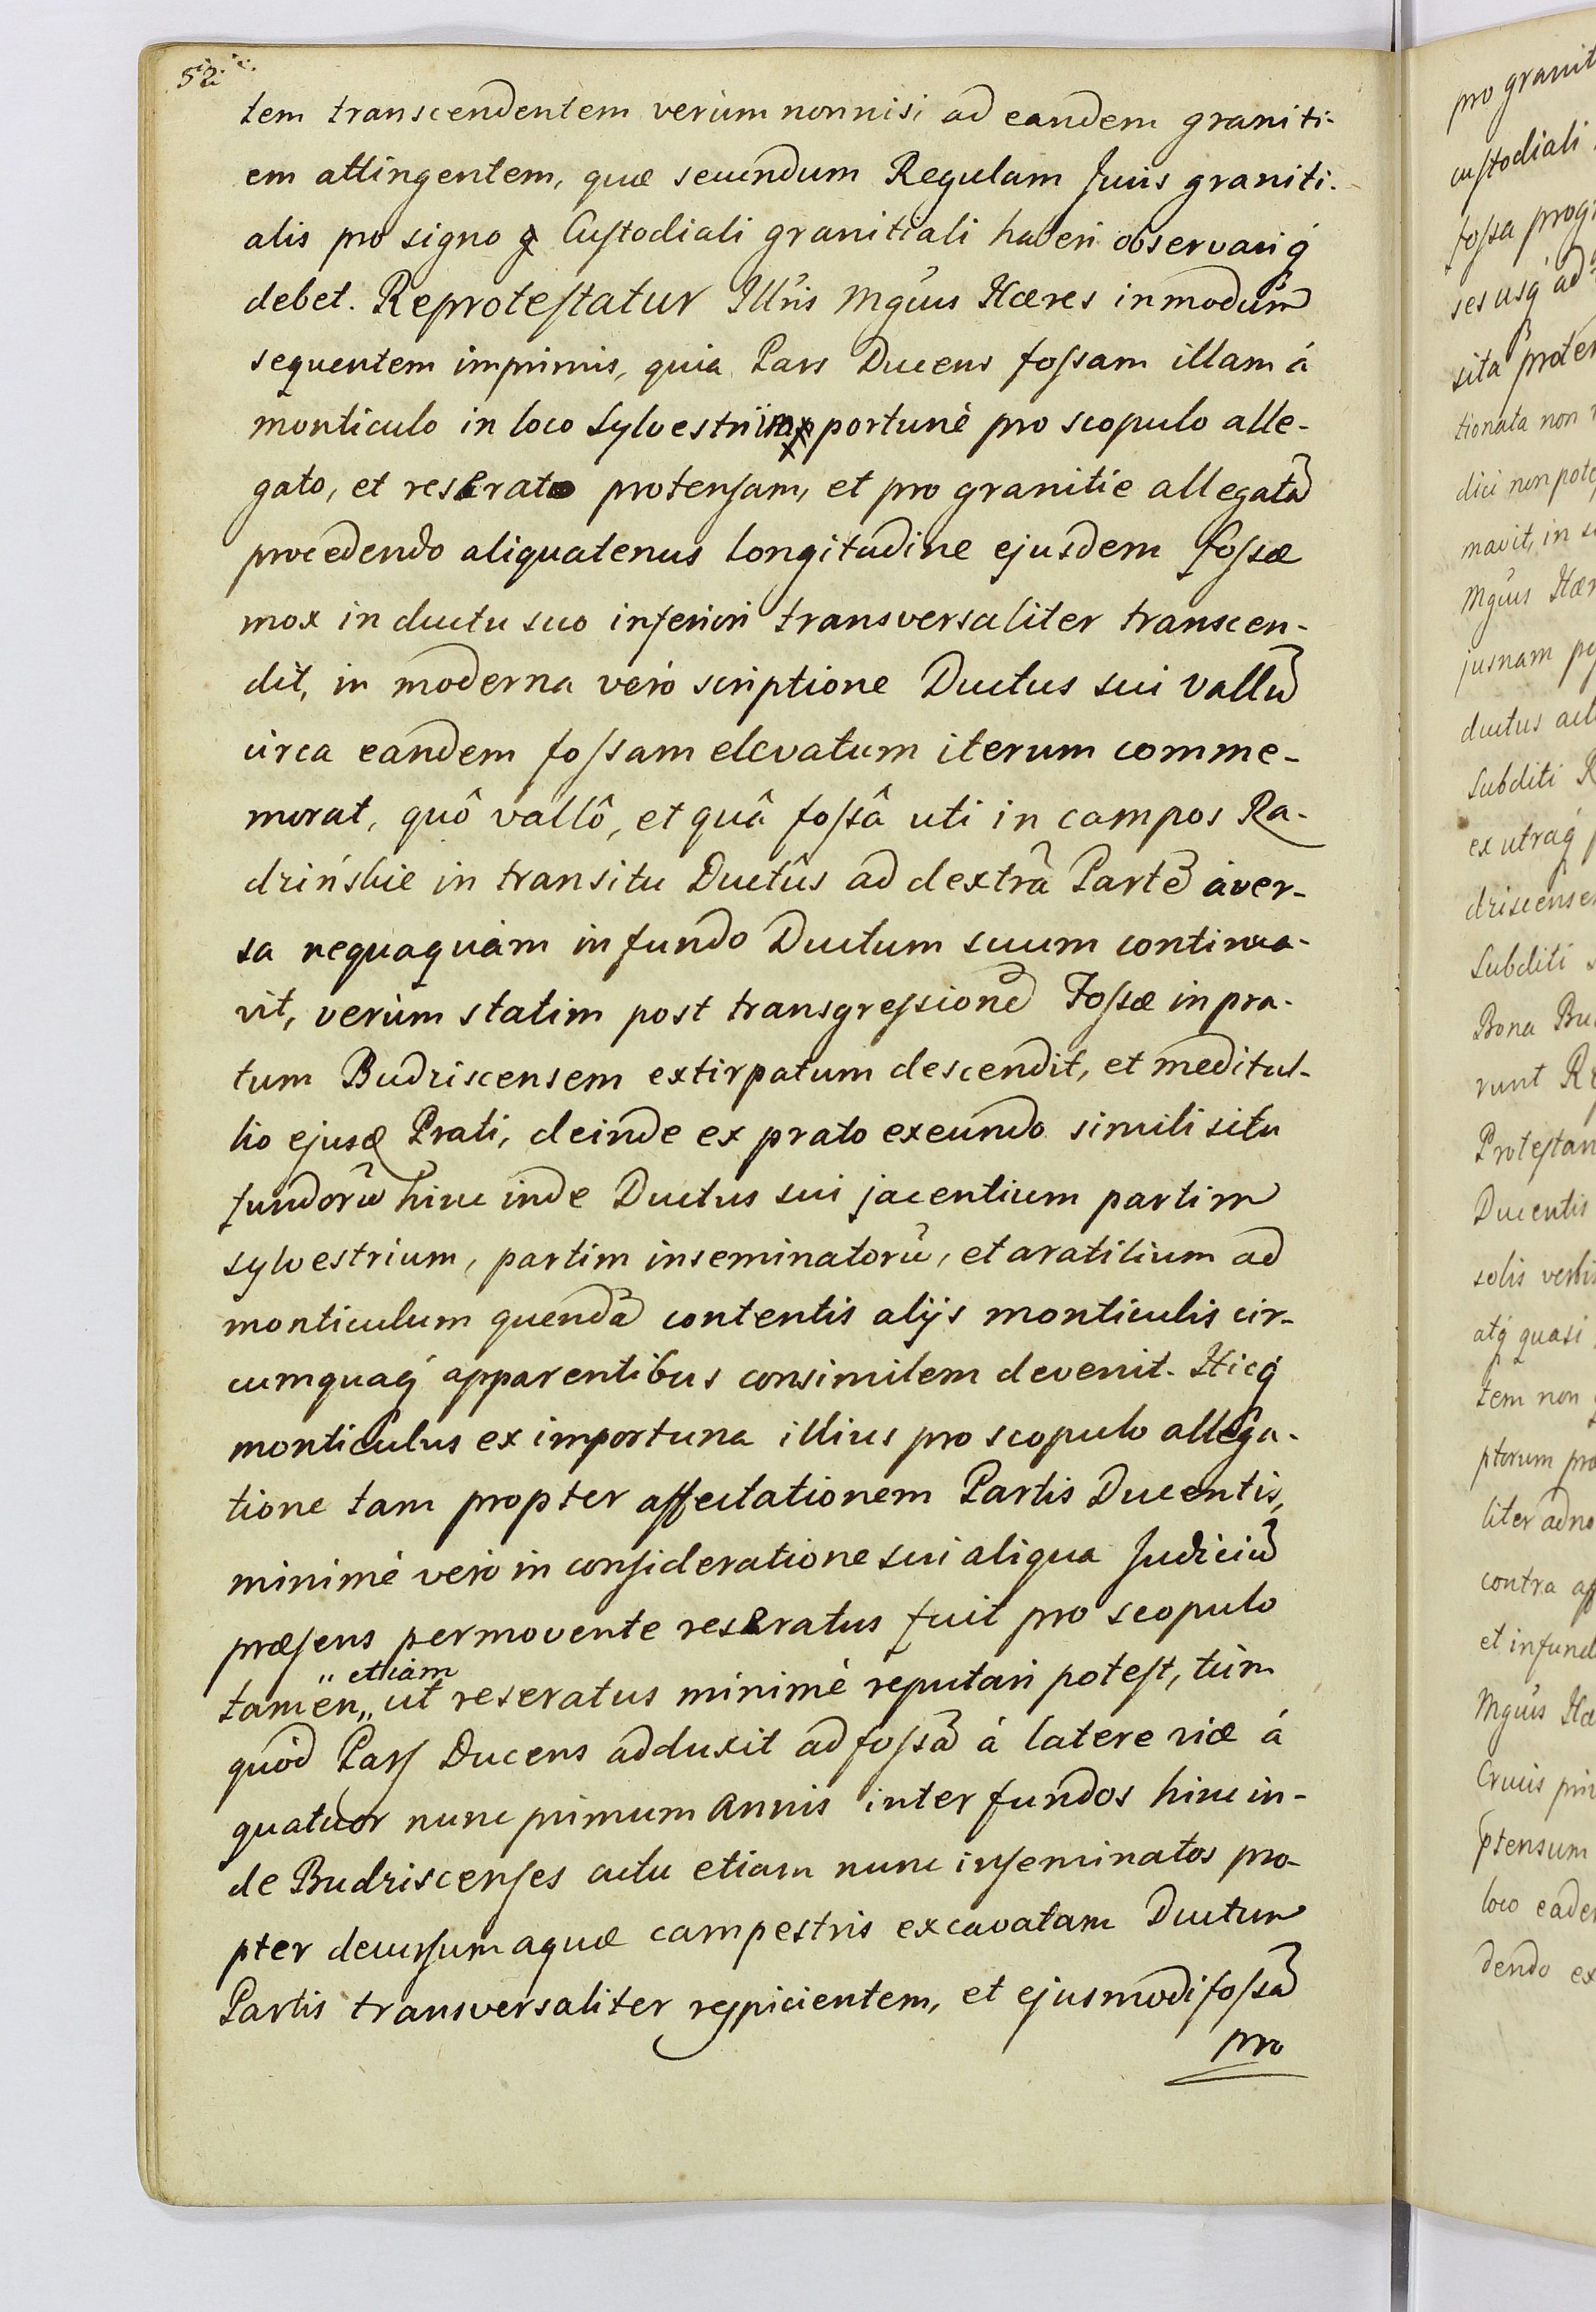 52
tem transcendentem verùm nonnisi ad eandem graniti-
em attingentem, quæ secundum Regulam Juris graniti-
alis pro signo Custodiali granitiali haberi observariq́
debet. Reprotestatur Illris Mgcus Hæres in modum̃
sequentem imprimis, quia Pars Ducens fossam illam á
monticulo in loco Sylvestri importunè pro scopulo alle-
gato, et reserato protensam, et pro granitie allegatã
procedendo aliquatenus longitudine ejusdem fossæ
mox in ductu suo inferiori transversaliter transcen-
dit, in moderna verò scriptione Ductus sui vallũ
circa eandem fossam elevatum iterum comme-
morat, quô vallô, et quâ fossâ uti in campos Ra-
drińskie in transitu Ductûs ad dextrã Partẽ aver-
sa nequaquàm in fundo Ductum suum continua-
vit, verùm statim post transgressionẽ Fossæ in pra-
tum Budziscensem extirpatum descendit, et meditul-
lio ejusd Prati, deinde ex prato exeundo simili situ
fundorũ hinc inde Ductus sui jacentium partim
sylvestrium, partim inseminatorũ, et aratilium ad
monticulum quendã contentis alijs monticulis cir-
cumquaq́ apparentibus consimilem devenit. Hicq́
monticulus ex importuna illius pro scopulo allega-
tione tam propter affectationem Partis Ducentis,
minimè verò in consideratione sui aliqua Judiciũ
præsens permovente reseratus fuit pro scopulo
tamen „etiam„ ut reseratus minimè reputari potest, tùm
quòd Pars Ducens adduxit ad fossã à latere viæ á
quatuor nunc primum annis inter fundos hinc in-
de Budziscenses actu etiam nunc inseminatos pro-
pter decursum aquæ campestris excavatam Ductum
Partis transversaliter respicientem, et ejusmodi fossã
pro
pro granit
custodiali
fossa prog
ses usq́ ad
sita proten
tionata non
dici non pote
mavit, in s
Mgcus Hær
jusnam po
ductus act
Subditi R
ex utraq́
driscense
Subditi s
Bona Bu
runt R
Protestan
Ducentis
solis verbi
atq́ quasi
tem non
ptorum pro
liter adno
contra aff
et in fund
Mgcus Hæ
Crucis pri
ptensum
loco eade
dendo ex